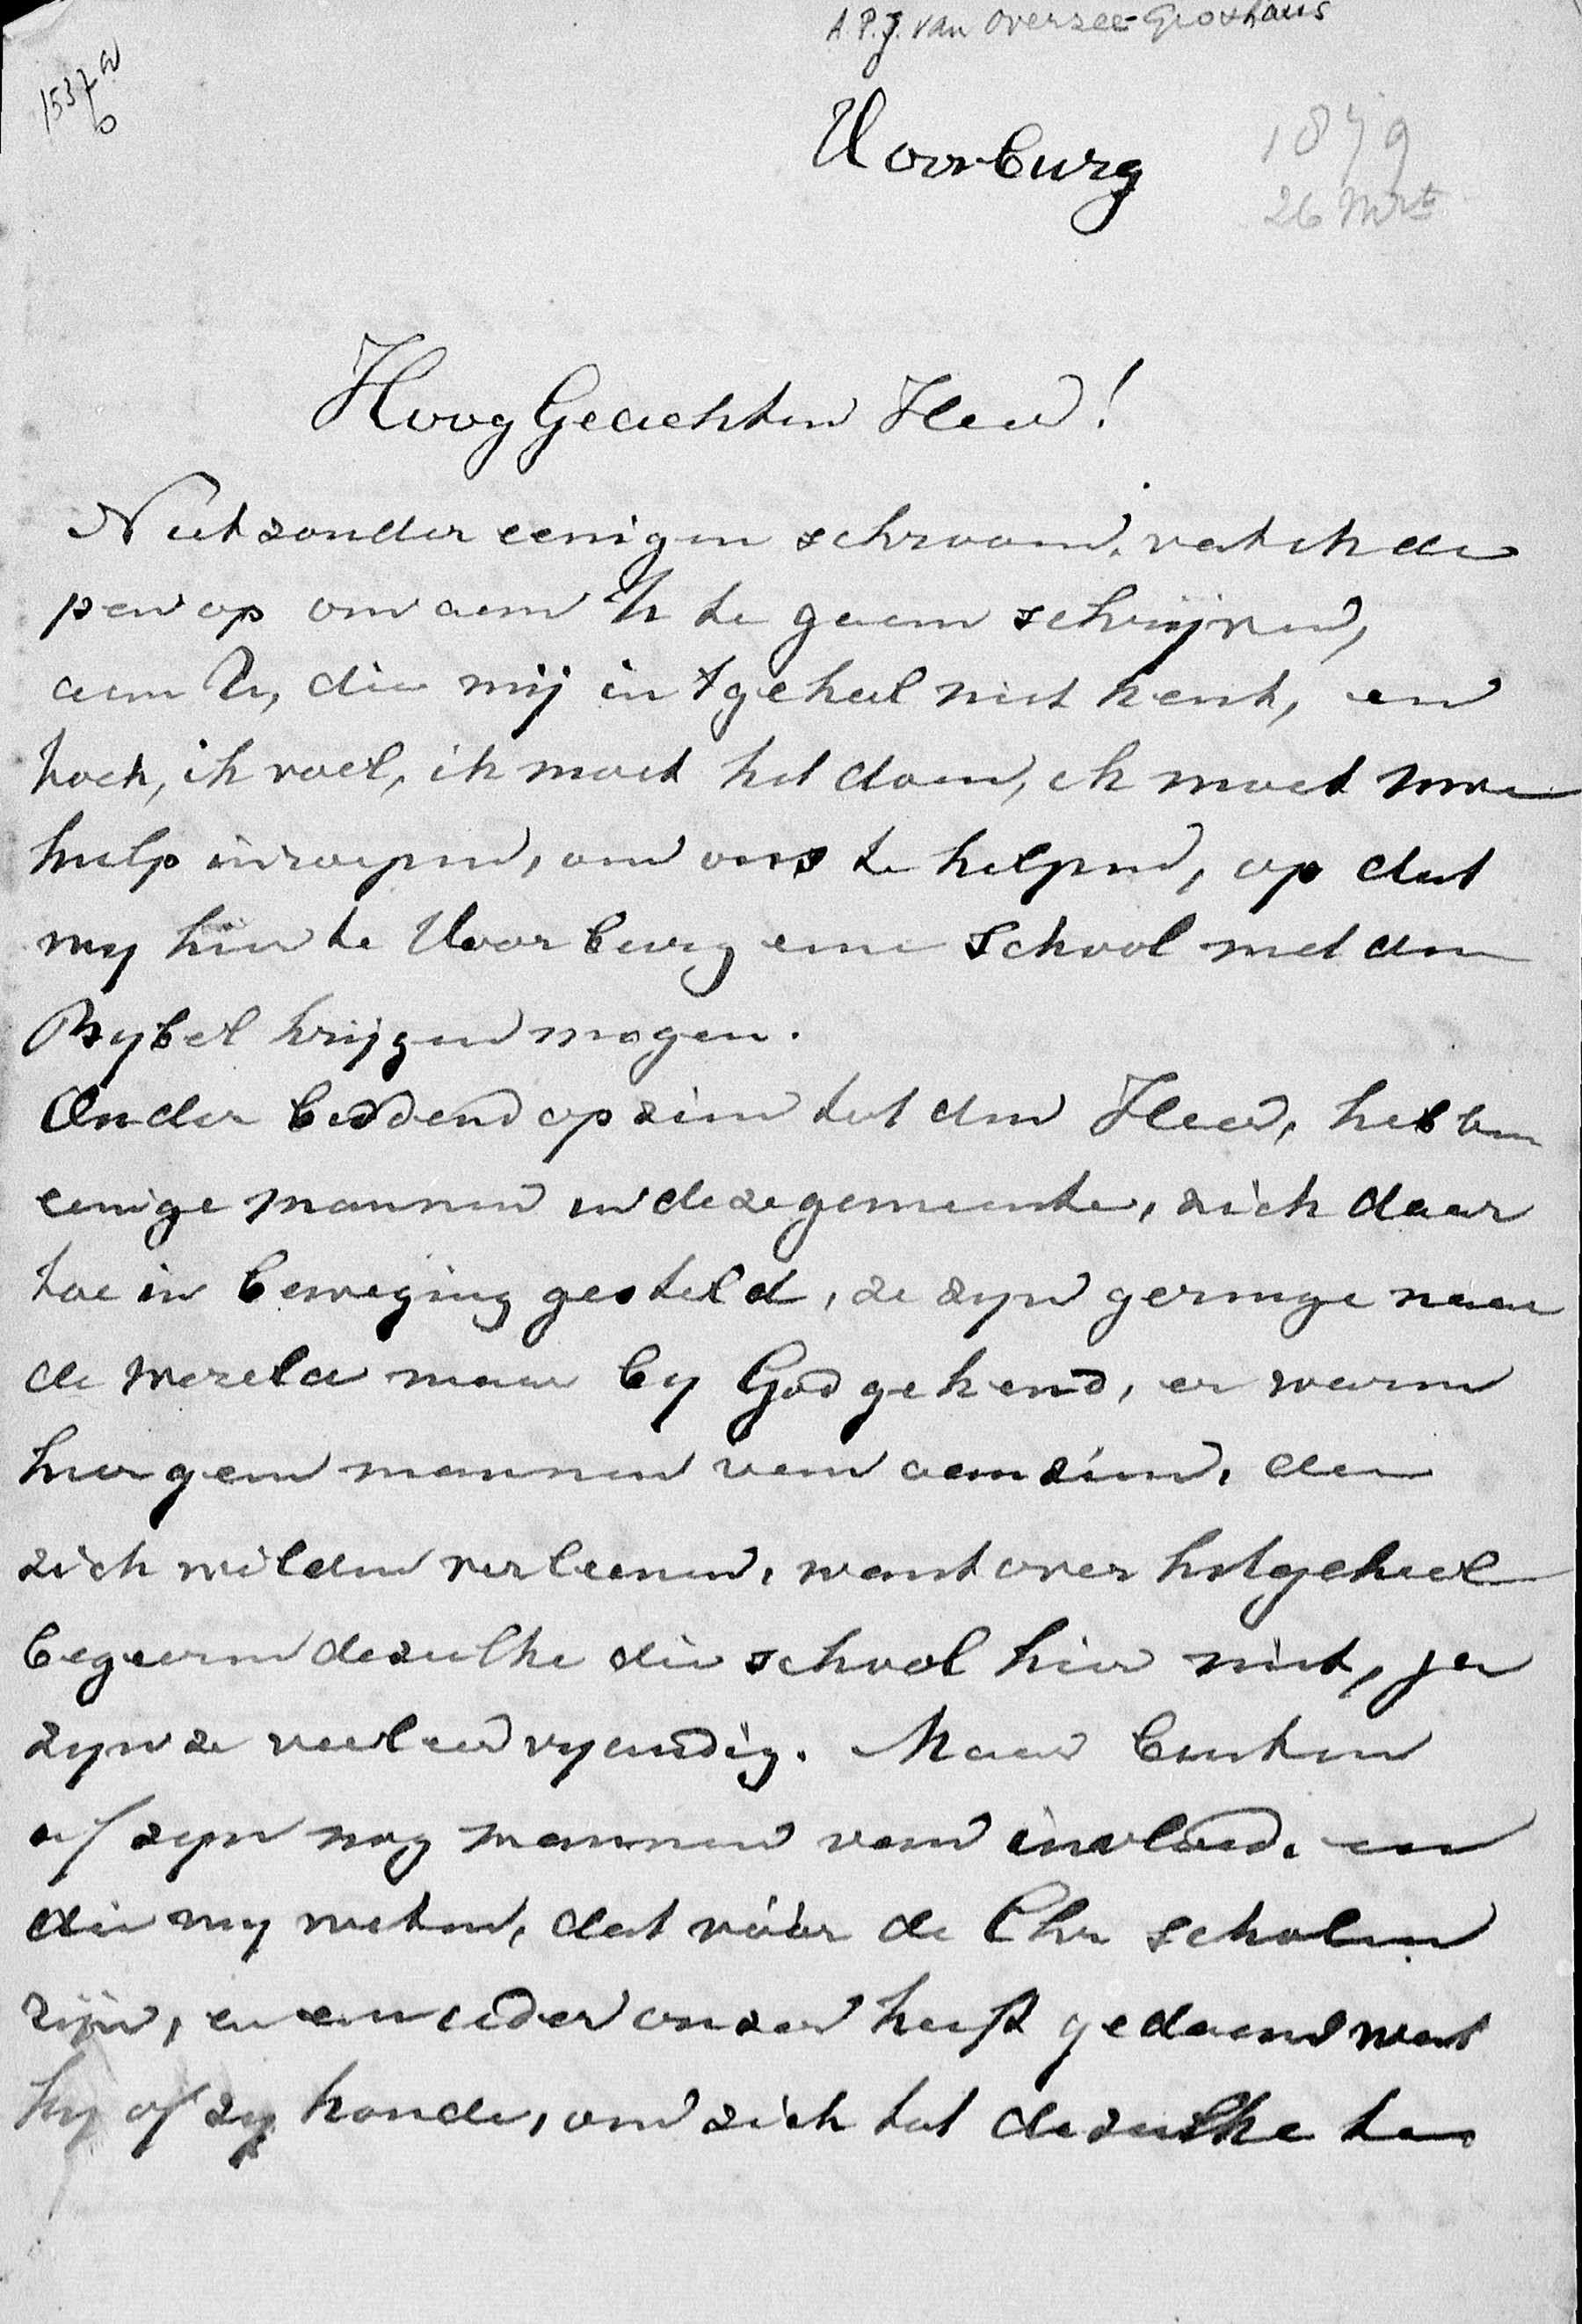 A.P.J. van Overzee-Groshans
1537a
b
Voorburg
1879
26 Mrt
Hoog Geachten Heer!
Niet zonder eenigen schroom, vat ik de
pen op om aan U te gaan schrijven,
aan U, die mij in 't geheel niet kent, en
toch, ik voel, ik moet het doen, ik moet uwe
hulp inroepen, om ons te helpen, op dat
wy hier te Voorburg eene School met den
Bybel krijgen mogen.
Onder biddend opzien tot den Heer, hebben
eenige mannen in deze gemeente, zich daar
toe in beweging gesteld, ze zyn geringe naar
de wereld maar by God gekend, er waren
hier geen mannen van aanzien, die
zich wilden verleenen, want over het geheel
begeeren dezulke die school hier niet, ja
zyn ze veeleer vyandig. Maar buiten
af zyn nog mannen van invloed, en
die wy weten, dat vóór de Chr scholen
zijn, en een ieder onzer heeft gedaan wat
hy of zy konde, om zich tot dezulke te